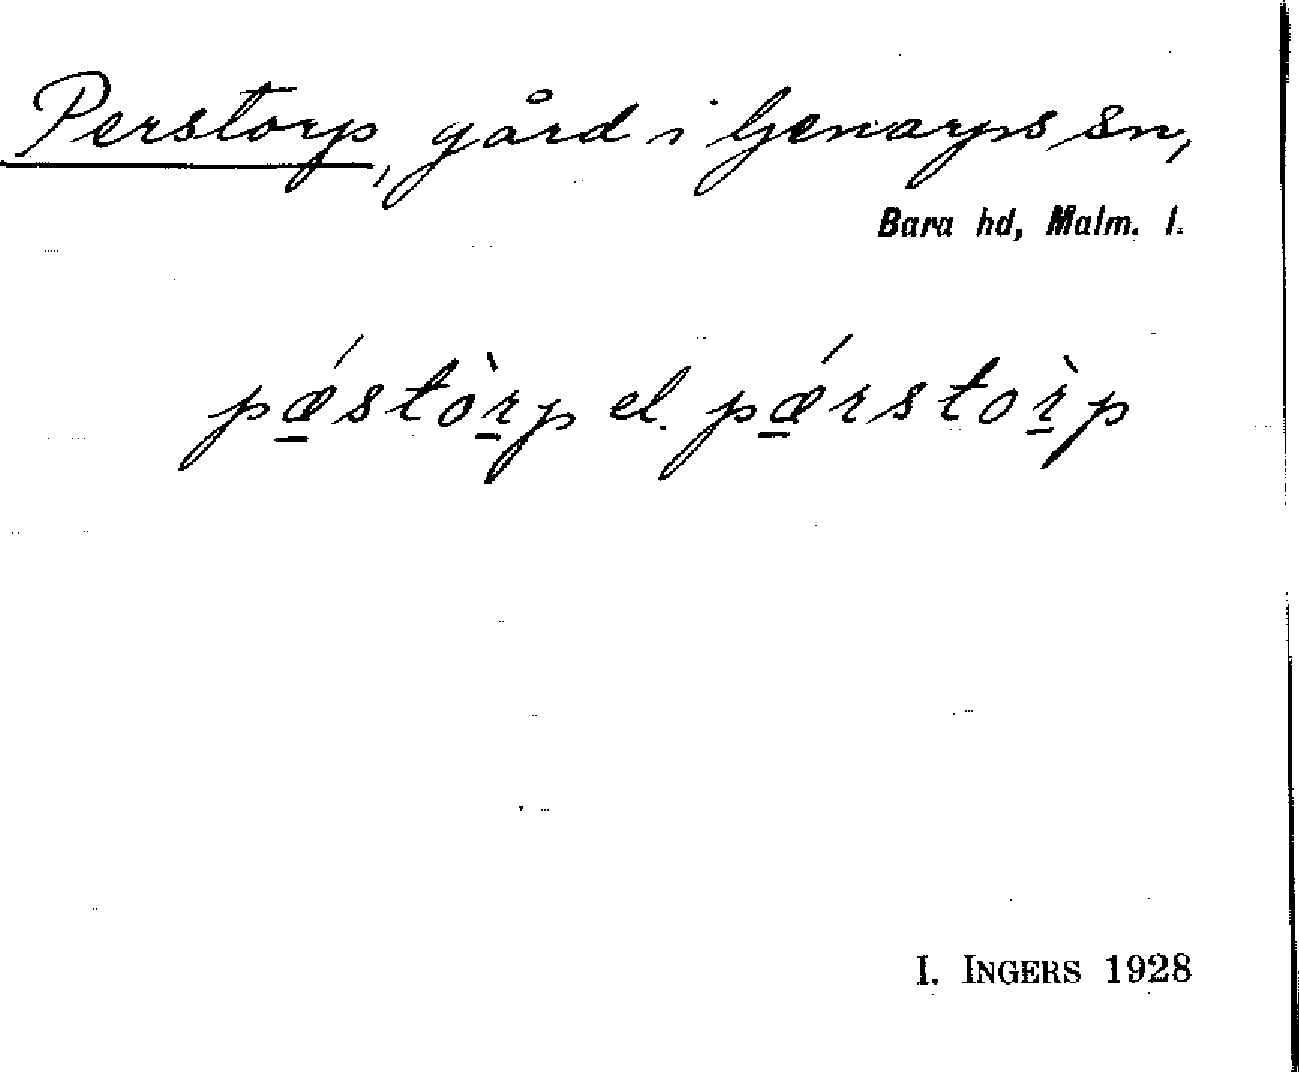 Perstorp, gård i Genarps sn,
Bara hd, Malm. l.
pǽstòrp el. pǽrstor̀p
I. INGERS 1928